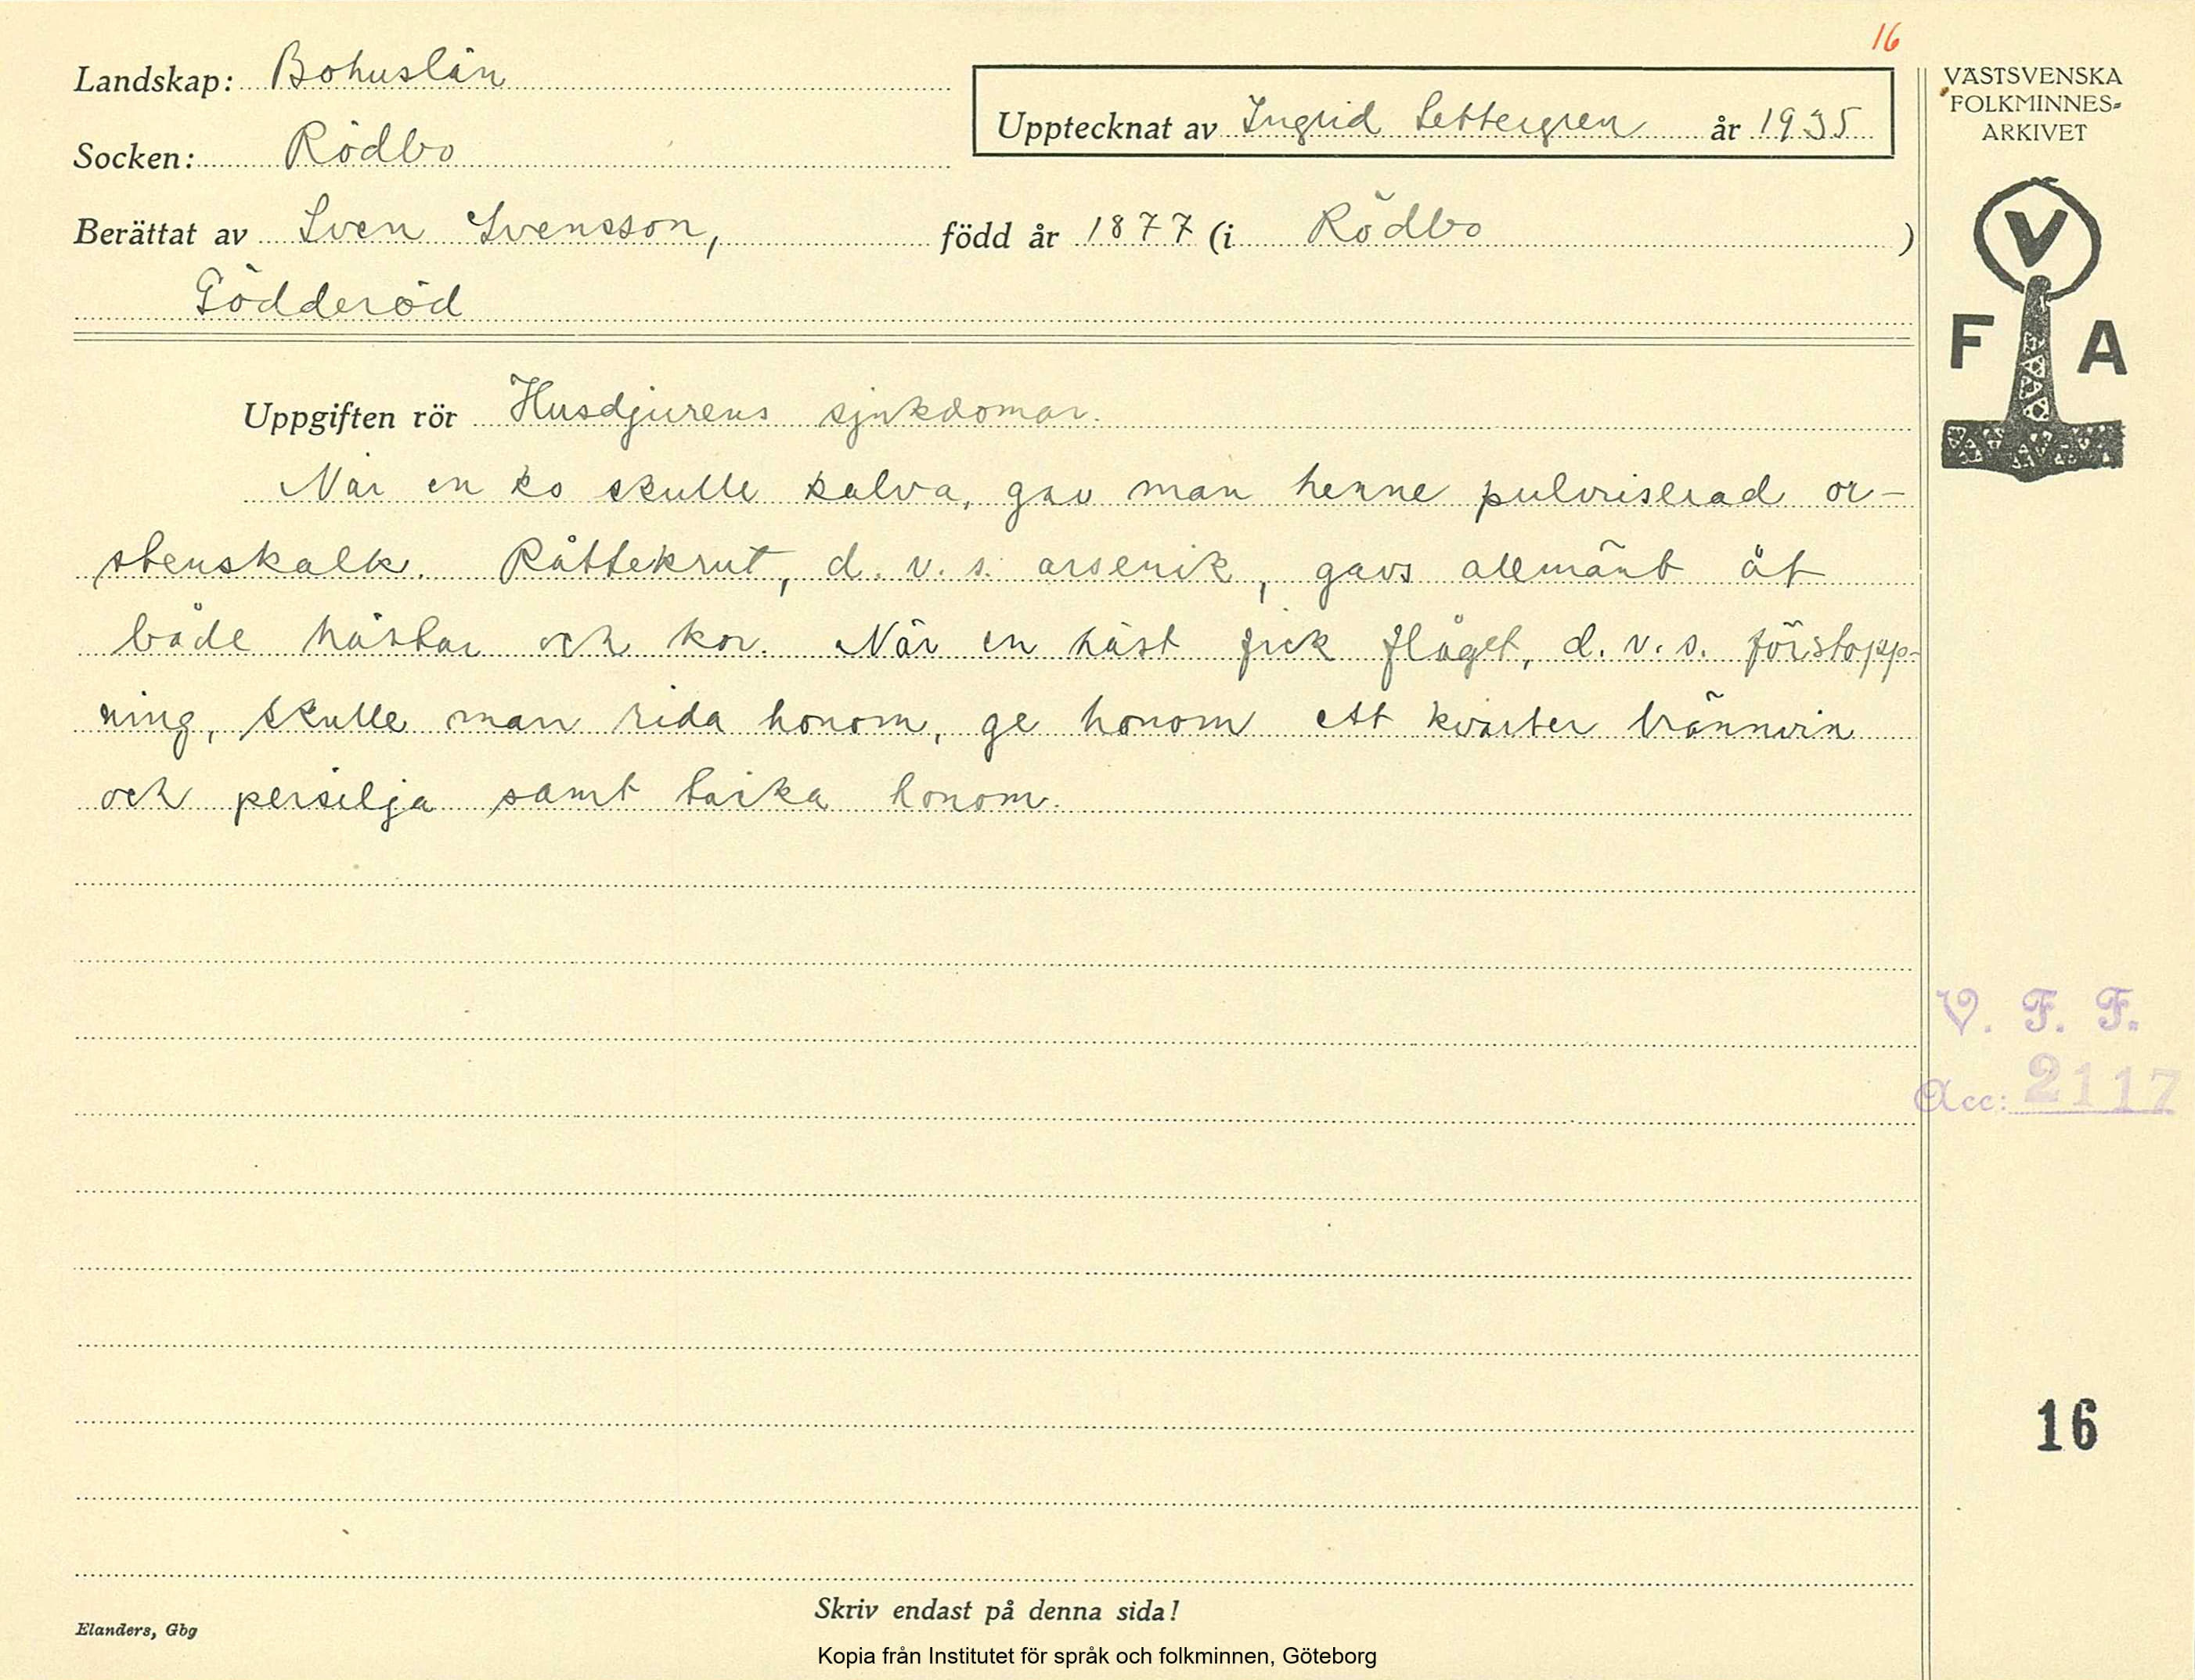 16
Landskap: Bohuslän
Upptecknat av Ingrid Settergren år 1935
Socken: Rödbo
Berättat av Sven Svensson, född år 1877 (i Rödbo )
Gödderöd
VÄSTSVENSKA
FOLKMINNES-
ARKIVET
V
F A
Uppgiften rör Husdjurens sjukdomar.
När en ko skulle kalva, gav man henne pulvriserad or-
stenskalk. Råttekrut, d. v. s. arsenik, gavs allmänt åt
både hästar och kor. När en häst fick flåget, d. v. s. förstopp-
ning, skulle man rida honom, ge honom ett kvarter brännvin
och persilja samt tarka honom.
V. F. F.
Acc: 2117
16
Skriv endast på denna sida!
Elanders, Gbg
Kopia från Institutet för språk och folkminnen, Göteborg